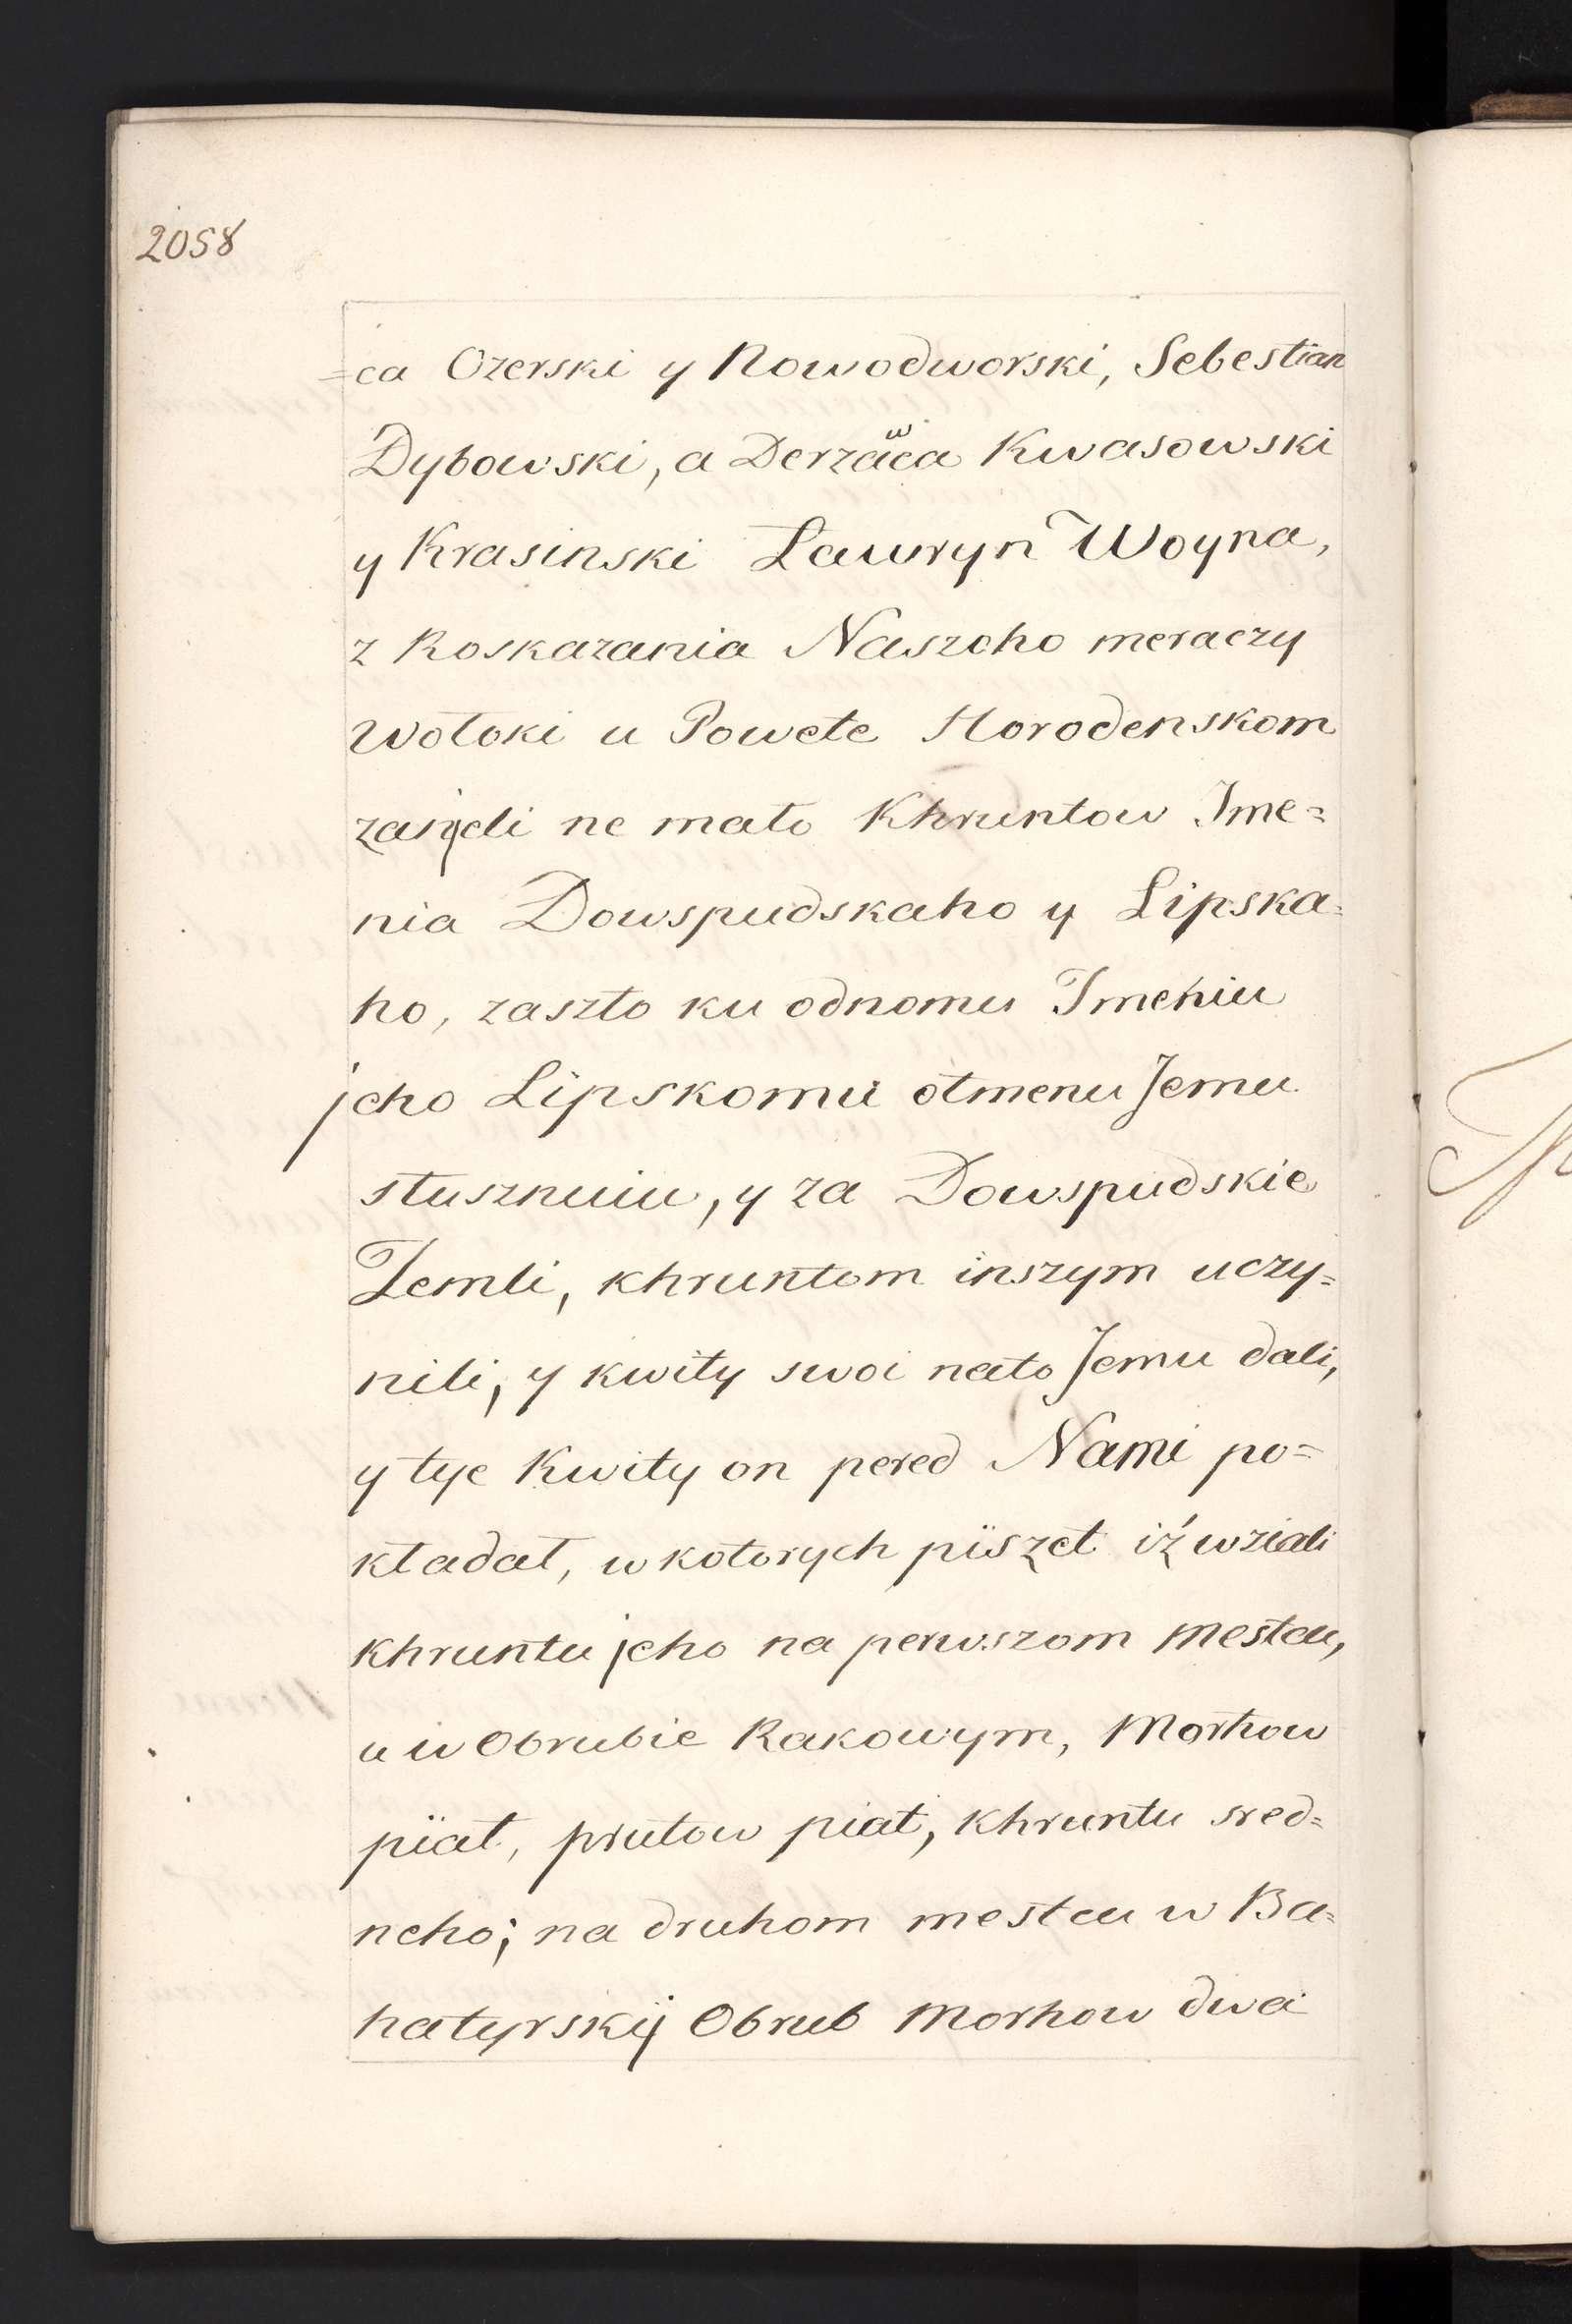 2058
=ca Ozerski y Nowodworski, Sebestian
Dybowski, a Derzawca Kwasowski
y Krasinski Lawryn Woyna,
z Roskazania Naszoho meraczy
Wołoki u Powete Horodenskom
zasijeli ne mało Khruntow Ime=
nia Dowspudskaho y Lipska=
ho, zaszto ku odnomu Imeniu
jeho Lipskomu otmenu Jemu
słusznuiu, y za Dowspudskie
Zemli, khruntom inszym uczy=
nili, y kwity swoi nato Jemu dali,
y tye Kwity on pered Nami po=
kładał, w kotorych piszet iż wziali
Khruntu jeho na perwszom mestcu,
u w Obrubie Rakowym, Morhow
piat, prutow piat, Khruntu sred=
neho; na druhom mestcu w Ba=
hatyrskij Obrub Morhow dwa